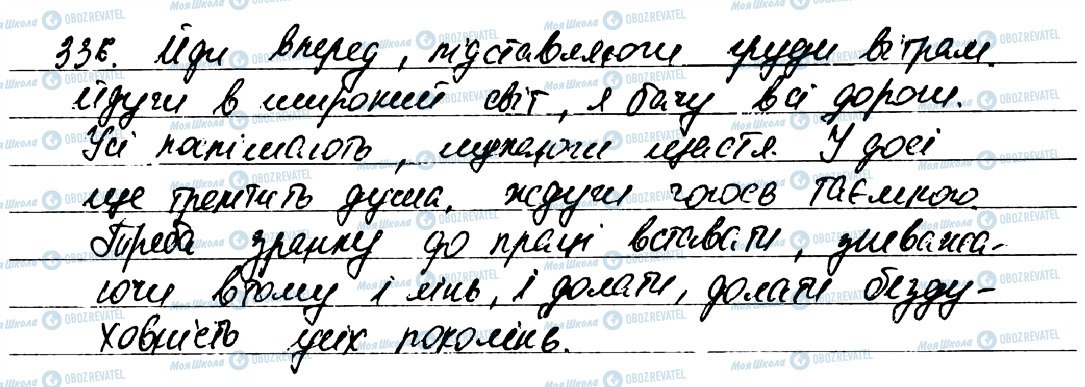 336. Йди вперед, підставляючи груди вітрам.
Йдучи в широкий світ, я бачу всі дороги.
Усі поспішають, шукаючи щастя. У досі
ще тремтить душа, ждучи чогось таємного.
Треба зранку до праці вставати, зневажа-
ючи втому і лінь, і долати, долати безду-
ховність усіх поколінь.